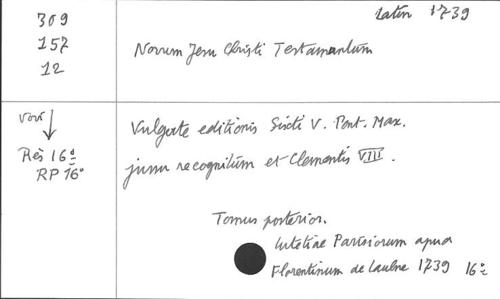 309
157
12
Latin 1739
Novum Jesu Christi Testamentum
Voir
Rés 16º
RP 16º
Vulgate editionis Sixti V. Pont. Max.
jussu recognitum et Clementis VIII.
Tomus posterior.
Lutetiae Parisiorum apud
Florentinum de Laulne 1739 16º